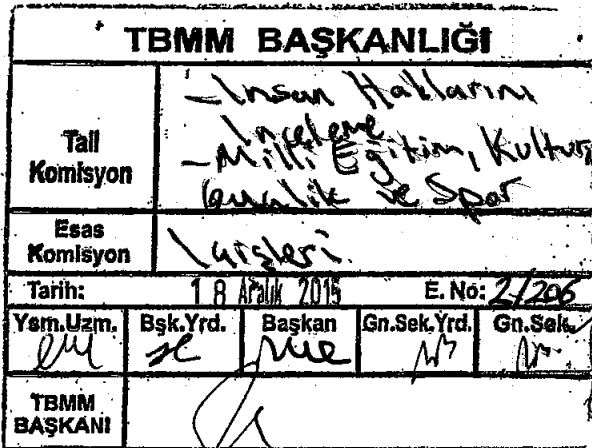 TBMM BAŞKANLIĞI
Tali
Komisyon
- İnsan Haklarını
İnceleme
- Milli Eğitim, Kültür,
Gençlik ve Spor
Esas
Komisyon
İçişleri.
Tarih: 18 Aralık 2015 E. No: 2/206
Ysm.Uzm. Bşk.Yrd. Başkan Gn.Sek.Yrd. Gn.Sek.
TBMM
BAŞKANI